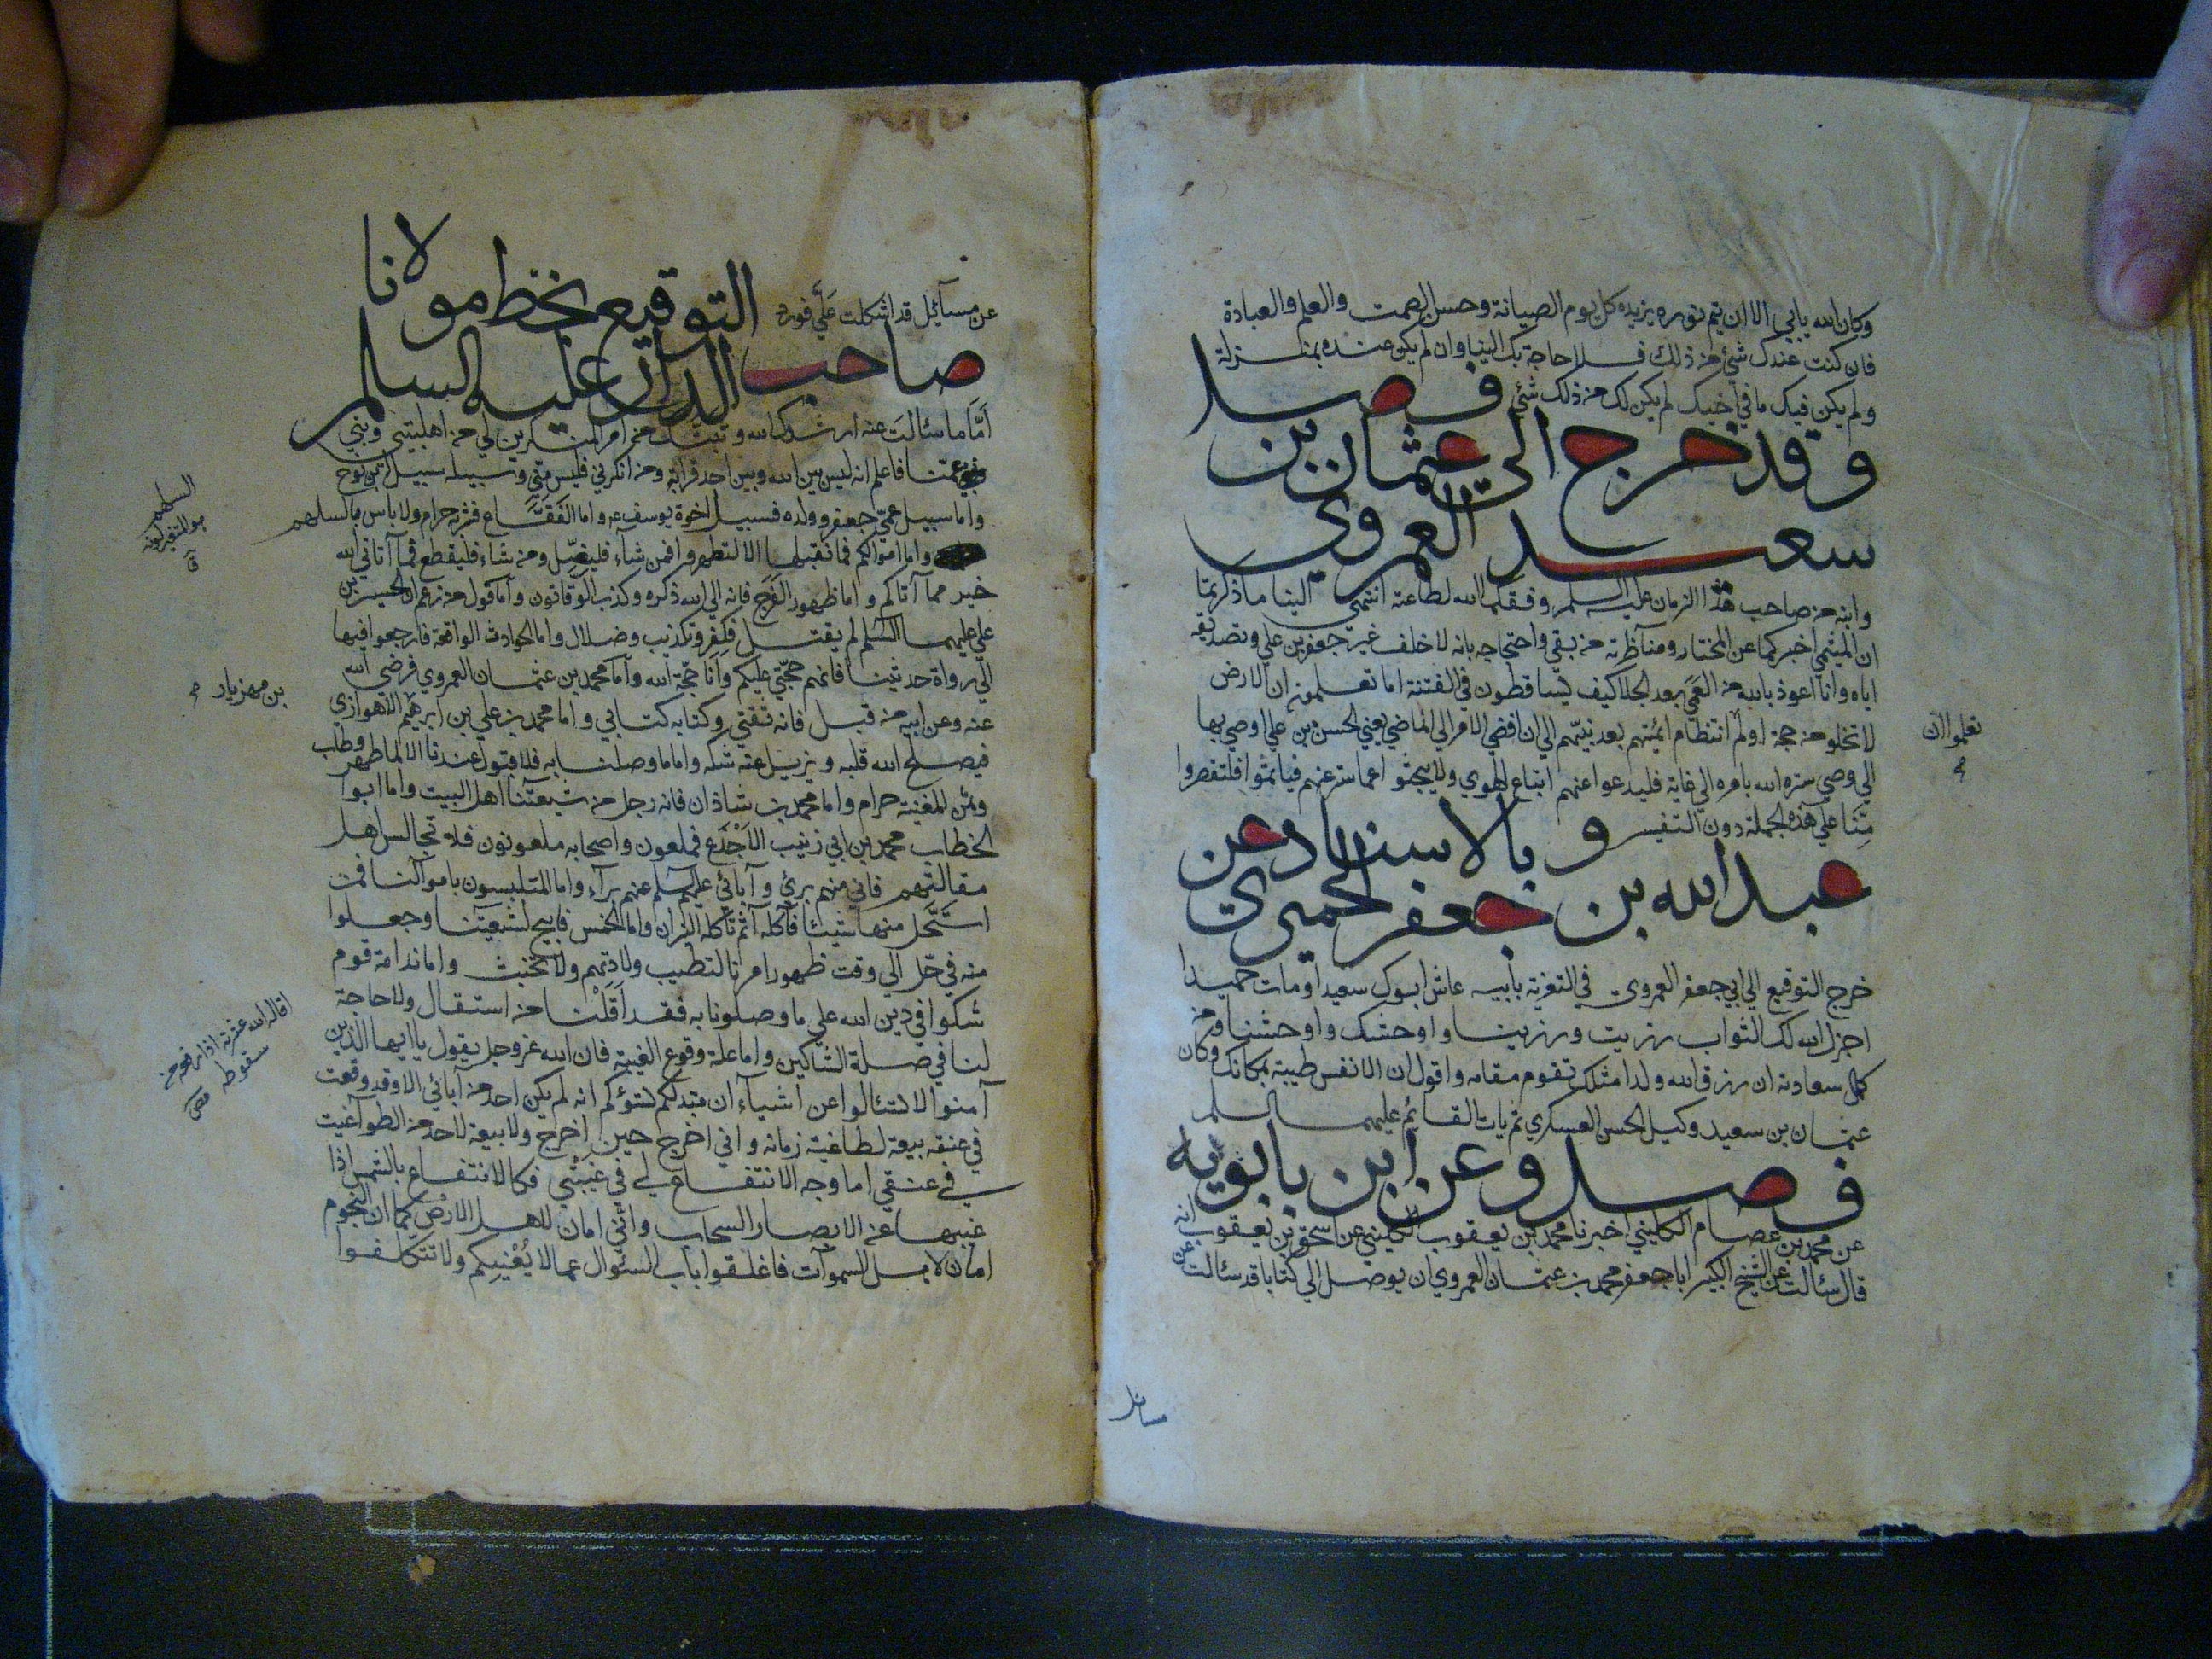 وكان الله يابي الا ان يتم نوره ويزيده كل يوم الصيانة وحسن الصمت والعلم والعبادة
فان كنت عندك شئ من ذلك فلا حاجة بك الينا وان لم يكن عنده بمنزلة
ولم يكن فيك ما في اخيك لم يكن لك من ذلك شئ فصل
وقد خرج الي عثمان بن
سعيد العمروي
وابنه من صاحب هذا الزمان عليه السلم وفقكما الله لطاعته انتهى الينا ما ذكرتما
ان الميثمي اخبركما عن المختار ومناظرته من بقي واحتجاجه بانه لا خلف غير جعفر بن علي وتصديقه
اياه وانا اعوذ بالله من العمي بعد الجلا كيف يتساقطون في الفتنة اما تعلمون ان الارض
لا تخلو من حجة اولم انتظام ائمتهم بعد نبيهم الي ان افضي الامر الي الماضي يعني الحسن بن علي اوصي بها
الي وصي ستره الله بامره الي غاية فليدعوا عنهم اتباع الهوي ولا يبحثوا عما ستر عنهم فياثموا فلتقصروا
منا علي هذه الجملة دون التفسير وبالاسناد عن
عبد الله بن جعفر الحميري
خرج التوقيع الي ابي جعفر العمروي في التعزية بابيه عاش ابوك سعيدا ومات حميدا
اجزل الله لك الثواب رزيت ورزينا واوحشك واوحشنا ومن
كمال سعادته ان رزق الله ولدا مثلك تقوم مقامه واقول ان الانفس طيبة بمكانك وكان
عثمان بن سعيد وكيل الحسن العسكري ثم يات القائم عليهما السلم
فصل وعن ابن بابويه
عن محمد بن عصام الكليني اخبرنا محمد بن يعقوب الكليني عن اسحق بن يعقوب انه
قال سئالت عن الشيخ الكبير ابا جعفر محمد بن عثمان العمروي ان يوصل الي كتابا قد سئالت عن
تعلموا ان
مسائل
عن مسائيل قد اشكلت علي فورد التوقيع بخط مولانا
صاحب الدار عليه السلم
اما ما سئالت عنه ارشدك الله وثبتك من امر المنكرين لي من اهل بيتي وبني
عمنا فاعلم انه ليس بين الله وبين احد قرابة ومن انكرني فليس مني وسبيله سبيل ابن نوح
واما سبيل عمي جعفر وولده فسبيل اخوة يوسف عه واما الفقاع فشربه حرام ولا باس بالسلهم
واما اموالكم فما نقبلها الا لتطهروا فمن شاء فليصل ومن شاء فليقطع فما آتاني الله
خير مما آتاكم واما ظهور الفرج فانه الي الله ذكره وكذب الوقاتون واما قول من زعم ان الحسين بن
علي عليهما السلم لم يقتل فكفر وتكذيب وضلال واما الحوادث الواقعة فارجعوا فيها
الي رواة حديثنا فانهم حجتي عليكم وانا حجة الله واما محمد بن عثمان العمروي فرضي الله
عنه وعن ابيه من قبل فانه ثقتي وكتابه كتابي واما محمد بن علي بن ابرهيم الاهوازي
فيصلح الله قلبه ويزيل عنه شكه واما ما وصلتنا به فلا قبول عندنا الا لما طهر وطاب
وثمن المغنية حرام واما محمد بن شاذان فانه رجل من شيعتنا اهل البيت واما ابوا
الخطاب محمد بن ابي زينب الاجدع فملعون واصحابه ملعونون فلا تجالس اهل
مقالتهم فاني منهم برئ وآبائي عليهم السلم عنهم برآء واما المتلبسون باموالنا فمن
استحل منها شيئا فاكله انما تاكله النيران واما الخمس فابيح لشيعتنا وجعلوا
منه في حل الي وقت ظهور امرنا لتطيب ولادتهم ولا تخبث واما ندامة قوم
شكوا في دين الله علي ما وصلونا به فقد اقلنا من استقال ولا حاجة
لنا في صلة الشاكين واما علة وقوع الغيبة فان الله عز وجل يقول يا ايها الذين
آمنوا لا تسئالوا عن اشياء ان تبد لكم تسؤكم انه لم يكن احد من آبائي الا وقد وقعت
في عنقه بيعة لطاغية زمانه واني اخرج حين اخرج ولا بيعة لاحد من الطواغيت
في عنقي اما وجه الانتفاع لي في غيبتي فكالانتفاع بالشمس اذا
غيبها عن الابصار السحاب واني امان لاهل الارض كما ان النجوم
امان لاهل السموات فاغلقوا باب السئوال عما لا يعنيكم ولا تتكلفوا
السلهم
بن مهزيار
اقال الله عثرته اذا رفعه من
سقوطه